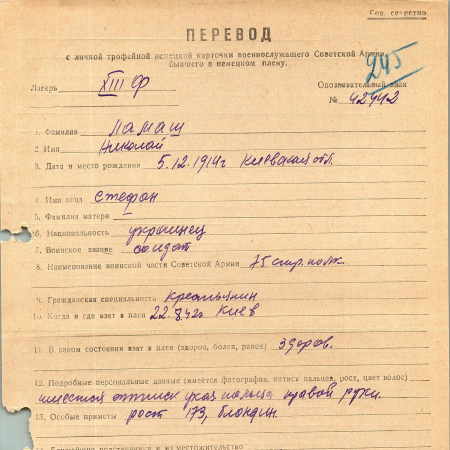 Сов. секретно
ПЕРЕВОД
с личной трофейной немецкой карточки военнослужащего Советской Армии,
бывшего в немецком плену.
245
Лагерь XIII Ф Опознавательный знак
№ 42442
1. Фамилия Ламаш
2. Имя Николай
3. Дата и место рождения 5.12.1914г Киевская обл.
4. Имя отца Стефан
5. Фамилия матери
6. Национальность украинец
7. Воинское звание солдат
8. Наименование воинской части Советской Армии 75 стр. полк
9. Гражданская специальность Крестьянин
10. Когда и где взят в плен Киев
11. В каком состоянии взят в плен (здоров, болен, ранен) здоров.
12. Подробные персональные данные (имеется фотография, оттиск пальцев, рост, цвет волос)
имеется оттиск указ пальца правой руки.
13. Особые приметы рост 173, блондин.